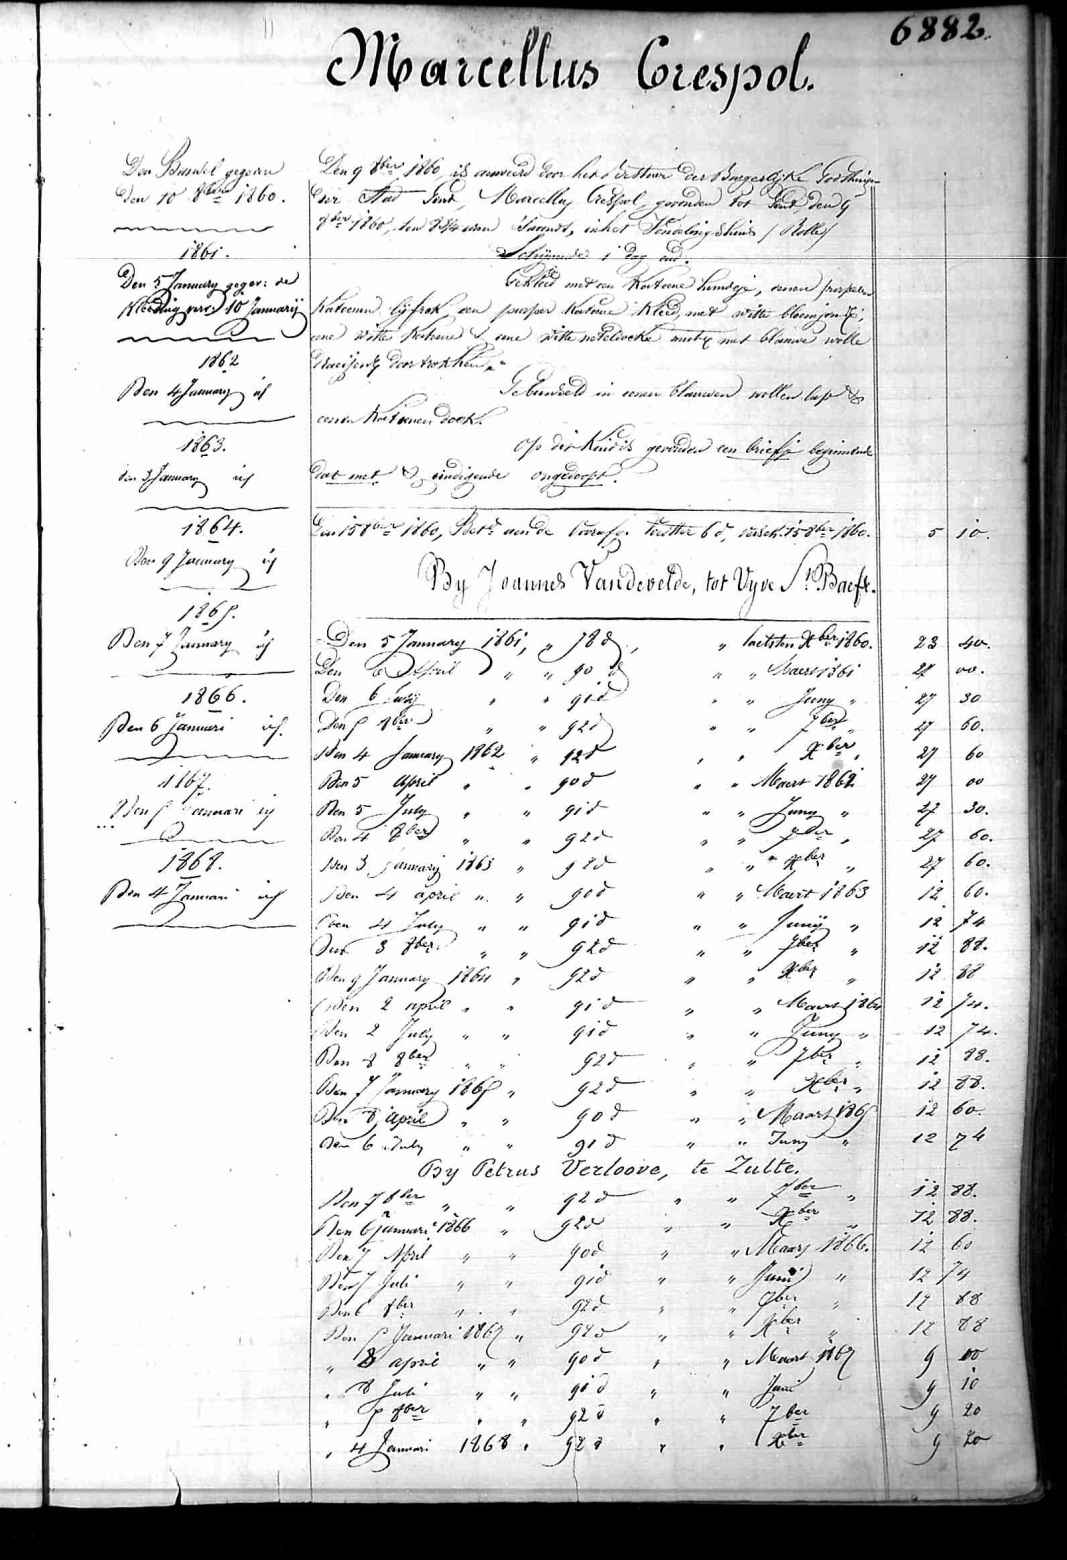 6882.
Marcellus Crespol.
Den Bundel gegeven
den 10 8ber 1860.
1861.
Den 5 January gegev: de
kleeding verv. 10 Januarij
1862
Den 4 January id
1863.
den 3 January id
1864.
Den 9 January id
1865.
Den 7 January id
1866.
Den 6 Januari id.
1867.
Den 5 Januari id
1868.
Den 4 Januari id
Den 9 8ber 1860, is aenveerd door het Bestuur der Burgerlijke Godshuizen
der Stad Gent, Marcellus Crespol, gevonden tot Gent, den 9
8ber 1860, ten 8 3/4 uren s'avonds, in het Vondelingshuis /Rolle/
Schijnende 1 dag oud.
Gekleed met een Katoene hemdeje, eenen purperen
katoenen lijfrok, een purper katoene kleed, met witte bloemjens,
eene witte katoene & eene witte neteldoeke muts met blauwe wolle
doortrokken.
Gebundeld in eenen blauwen wollen lap &
eenen Katoenen doek.
Op dit Kind is gevonden een briefje beginnende
dat met & eindigende ongedoopt.
Den 15 8ber 1860, Bet. aen de Voorn. Voedster 6 d, versch. 15 8ber 1860. 5 10.
By Joannes Vandevelde, tot Vyve St. Baefs.
Den 5 January 1861, " 78 d, " laetsten Xber 1860. 23 40.
Den 6 April " " 90 d " " Maert 1861 27 00.
Den 6 July " " 91 d " " Juny " 27 30
Den 5 8ber " " 92 d " " 7ber " 27 60.
Den 4 January 1862 " 92 d " " Xber " 27 60
Den 5 April " " 90 d " " Maert 1862 27 00
Den 5 July " " 91 d " " Juny " 27 30.
Den 4 8ber " " 92 d " " 7ber " 27 60.
Den 3 January 1863 " 92 d " " Xber " 27 60.
Den 4 april " " 90 d " " Maert 1863 12 60.
Den 4 July " " 91 d " " Junij " 12 74
Den 3 8ber " " 92 d " " 7ber " 12 88.
Den 9 January 1864 " 92 d " " Xber " 12 88
Den 2 april " " 91 d " " Maert 1864 12 74.
Den 2 July " " 91 d " " Juny " 12 74.
Den 8 8ber " " 92 d " " 7ber " 12 88.
Den 7 January 1865 " 92 d " " Xber " 12 88.
Den 8 april " " 90 d " " Maart 1865 12 60.
Den 6 July " " 91 d " " Juny " 12 74
By Petrus Verloove, te Zulte.
Den 7 8ber " " 92 d " " 7ber " 12 88.
Den 6 Januari 1866 " 92 d " " Xber " 12 88.
Den 7 April " " 90 d " " Maart 1866. 12 60
Den 7 Juli " " 91 d " " Juni " 12 74
Den 6 8ber " " 92 d " " 7ber " 12 88
Den 5 Januari 1867 " 92 d " " Xber " 12 88
" 8 april " " 90 d " " Maart 1867 9 00
" 8 Juli " " 91 d " " Juni 9 10
" 5 8ber " " 92 d " " 7ber 9 20
" 4 Januari 1868 " 92 d " " Xber 9 20